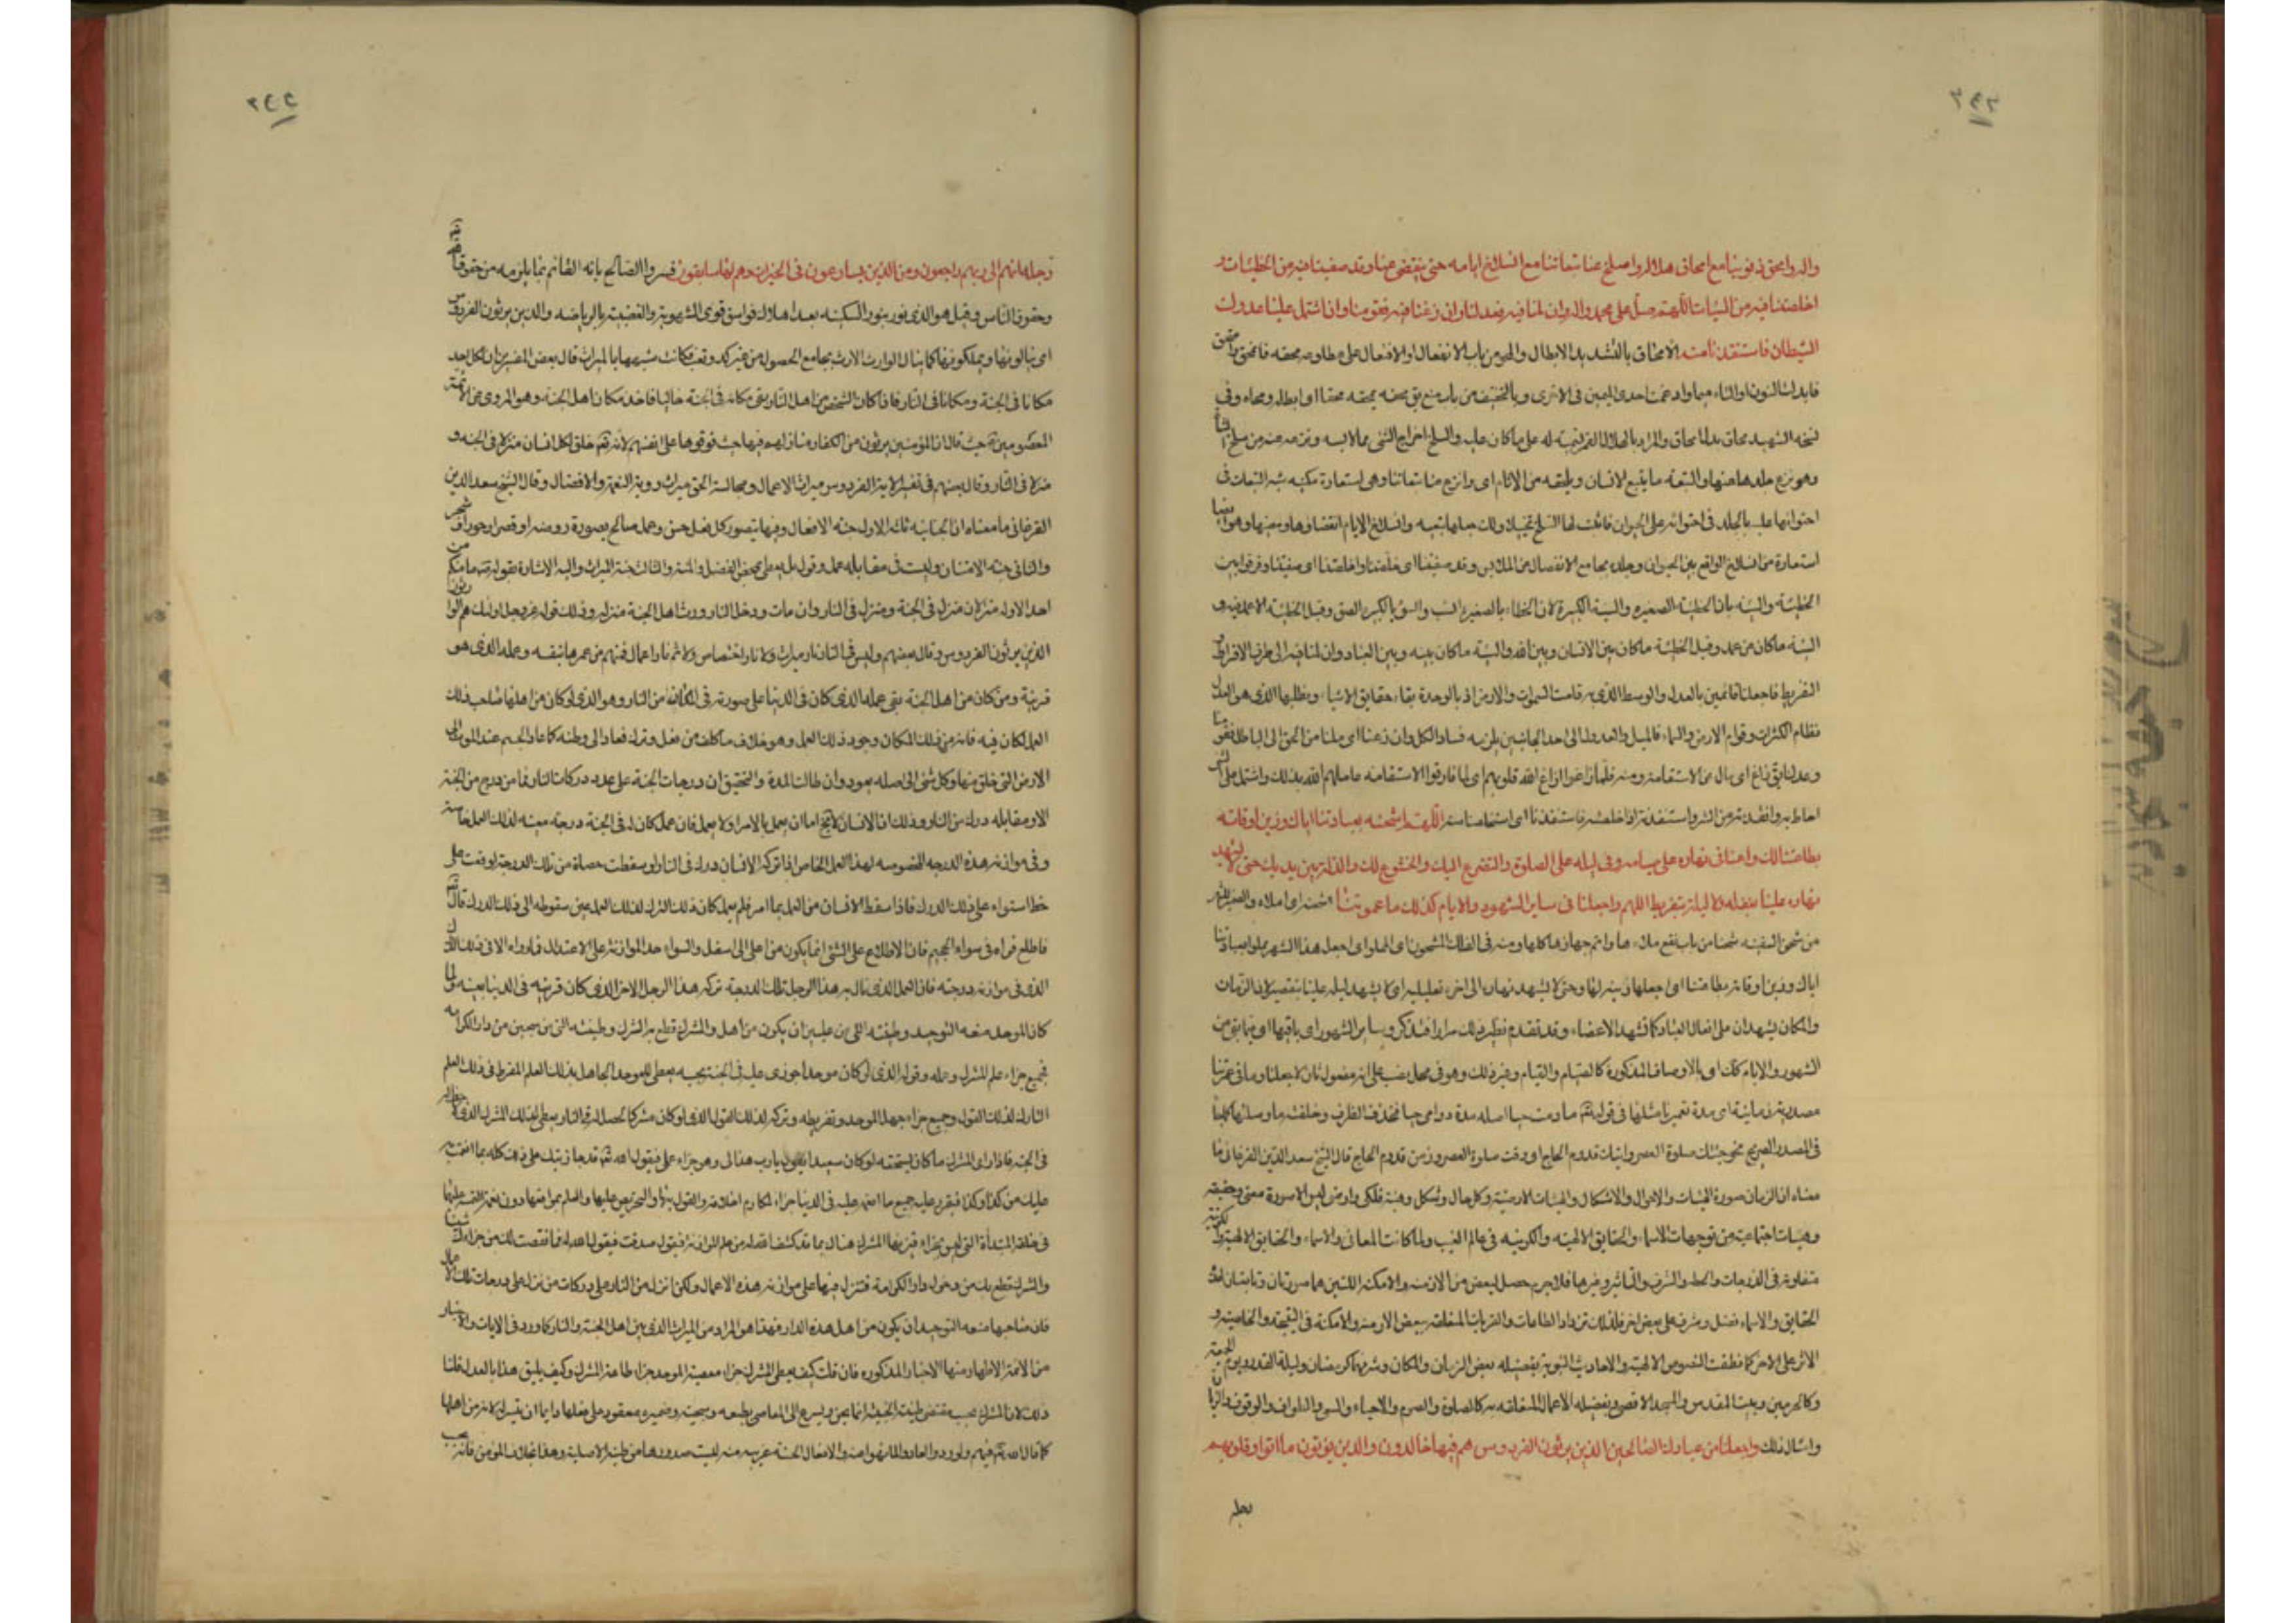 واله وامحق ذنوبنا مع امحاق هلاله واسلخ عنا تبعاتنا مع انسلاخ ايامه حتى ينقضي عنا وقد صفيتنا فيه من الخطيئات و
اخلصتنا فيه من السيئات اللهم صل على محمد واله وان ملنا فيه فعدلنا وان زغنا فيه فقومنا وان اشتمل علينا عدوك
الشيطان فاستنقذنا منه الامحاق بالتشديد الابطال والمحو من باب الانفعال
فابدلت النون او التاء ميما وادغمت احدى الميمين في الاخرى وبالتخفيف من باب منع يق محقه يمحقه محقا اى ابطله ومحاه وفي
نسخه الشهيد محاق بدل امحاق والمراد بالهلال القمر تسمية له على ما كان عليه والسلخ اخراج الشئ مما لابسه ونزعه عنه من سلخ الشاة
وهو نزع جلدها عنها والتبعة ما يتبع الانسان ويلحقه من الاثام اى وانزع عنا تبعاتنا وهى استعارة مكنيه شبه التبعات في
احتوائها عليه بالجلد في احتوائه على الحيوان فاثبت لها السلخ تخييلا وانسلاخ الايام انقضاؤها ومضيها وهو ايضا
استعارة من انسلاخ الواقع بين الحيوان وجلده بجامع الانفصال عن الملابس وقد صفيتنا اى خلصتنا واخلصتنا اى صفيتنا وفرقوا بين
الخطيئة والسيئة بان الخطيئة الصغيره والسيئة الكبيرة لان الخطاء بالصغيرة انسب والسوء بالكبيرة الصق وقيل الخطيئة الا عمد فيه و
السيئة ما كان من عمد وقيل الخطيئة ما كان بين الانسان وبين الله والسيئة ما كان بينه وبين العباد وان ملنا فيه الى طرف الافراط و
التفريط فاجعلنا قائمين بالعدل والوسط الذى به قامت السموات والارض اذ بالوحدة بقاء حقايق الاشياء وبظلها الذى هو العدل
نظام الكثرات وقوام الارض والسماء فالميل والعدول الى احد الجانبين يلزمه فساد الكل وان زغنا اى ملنا من الحق الى الباطل فقومنا
وعدلنا يق زاغ اى مال عن الاستقامة ومنه فلما زاغوا ازاغ الله قلوبهم اى لما فارقوا الاستقامة عاملهم الله بذلك واشتمل على الشئ
احاط به وانقذته من الشر واستنقذته اذا خلصته فاستنقذنا اى استخلصنا منه اللهم اشحنه بعبادتنا اياك وزين اوقاته
بطاعتنا لك واعنا في نهاره على صيامه وفي ليله على الصلوة والتضرع اليك والخشوع لك والذلة بين يديك حتى لا يشهد
نهاره علينا بغفلة ولا ليله بتفريط اللهم واجعلنا في ساير الشهور والايام كذلك ما عمرتنا اشحنه اى املاء والضمير للشهر
من شحن السفينة شحنا من باب نفع ملاءها واتم جهازها كلها ومنه في الفلك المشحون اى المملو اى اجعل هذا الشهر مملوا بعبادتنا
اياك وزين اوقاته بطاعتنا اى اجعلها زينة لها وحتى لا يشهد نهاره الى اخره تعليلية اى لا يشهد ليله علينا بتقصير لان الزمان
والمكان يشهدان على افعال العباد كما تشهد الاعضاء وقد تقدم نظير ذلك مرارا فتذكر وساير الشهور اى باقيها اى فيما بقي من
الشهور والايام كذلك اى بالاوصاف المذكورة كالصيام والقيام وغير ذلك وهو في محل نصب على انه مفعول ثان لاجعلنا وما في عمرتنا
مصدرية زمانية اى مدة تعميرنا مثلها في قوله تعالى ما دمت حيا اصله مدة دوامى حيا فحذف الظرف وخلفته ما وصلتها كما جاء
في المصدر الصريح نحو جئتك صلوة العصر واتيك قدوم الحاج اى وقت صلوة العصر وزمن قدوم الحاج قال الشيخ سعد الدين الفرغاني ما
معناه ان الزمان صورة الهيئات والاحوال والاشكال والهيئات الارضية وكل حال وشكل وهيئة فلكى وارضى ليس الا صورة معنى وحقيقة
وهيئات اجتماعية من توجهات الاسماء والحقايق الالهية والكونيه في عالم الغيب ولما كانت المعاني والاسماء والحقايق الالهية والكونية
متفاوتة في الدرجات والحيطة والشرف والتاثير وغيرها فلا جرم حصل لبعض من الازمنه والامكنه اللتين هما صورتان وتابعتان لهذه
الحقايق والاسماء فضل وشرف على بعض اخر فلذلك تزداد الطاعات والقربات المتعلقة ببعض الازمنه والامكنة في النتيجة والخاصية و
الاثر على الاخر كما نطقت النصوص الالهية والاحاديث النبوية بتفضيله بعض الزمان والمكان وشرفه كرمضان وليلة القدر ويوم الجمعة
وكالحرمين وبيت المقدس والمسجد الاقصى وتفضيله الاعمال المتعلقة به كالصلوة والصوم والاحياء والسعى والطواف والوقوف والزيارة
وامثال ذلك واجعلنا من عبادك الصالحين الذين يرثون الفردوس هم فيها خالدون والذين يؤتون ما اتوا وقلوبهم
وجلة
وجلة انهم الى ربهم راجعون ومن الذين يسارعون في الخيرات وهم لها سابقون فسروا الصالح بانه القائم بما يلزمه من حقوق الله
وحقوق الناس وقيل هو الذى نور بنور السكينه بعد اهلاك فواسق قوى الشهوية والغضبية بالرياضة والذين يرثون الفردوس
اى ينالونها ويملكونها كما ينال الوارث الارث بجامع الحصول من غير كد وتعب فكانت شبهها بالميراث قال بعض المفسرين ان لكل احد
مكانا في الجنة ومكانا في النار فاذا كان الشخص من اهل النار بقى مكانه في الجنة خاليا فاخذ مكان اهل الجنة وهو المروى عن الائمة
المعصومين حيث قال ان المؤمنين يرثون من الكفار منازلهم فيها حيث فوتوها على انفسهم لانه تعالى خلق لكل انسان منزلا في الجنه و
منزلا في النار وقال بعضهم في تفسير الاية الفردوس ميراث الاعمال ومجالسة الحق ميراث رؤية النعمة والافضال وقال الشيخ سعد الدين
الفرغاني ما معناه ان الجنان ثلث الاول جنة الافعال وفيها يتصور كل فعل حسن وعمل صالح بصورة روضة او قصر او حور او شجر
والثاني جنة الامتنان وليست في مقابله عمل وقول بل هو على محض الفضل والمنة والثالث جنة الميراث واليه الاشارة بقوله ما منكم من
احد الا وله منزلان منزل في الجنة ومنزل في النار وان مات ودخل النار ورث اهل الجنة منزله وذلك قوله عز وجل اولئك هم الوارثون
الذين يرثون الفردوس وقال بعضهم وليس في النار نار ميراث ولا نار اختصاص وانما ثم نار اعمال فمنهم من عمرها بنفسه وعمله الذى هو
قرينه ومن كان من اهل الجنة بقى عمله الذى كان في الدنيا على صورته في المكان من النار وهو الذى لو كان من اهلها صاحب ذلك
العمل لكان فيه فانه من ذلك المكان وجود ذلك العمل وهو خلاف ما كلف من فعل وترك فعاد الى وطنه كما عاد الجسم عند الموت الى
الارض التى خلق منها وكل شئ الى اصله يعود وان طالت المدة والتحقيق ان درجات الجنة على عدد دركات النار فما من درج من الجنة
الا ومقابله درك من النار وذلك ان الانسان لا يخ اما ان يعمل بالامر او لا يعمل فان عمل كان له في الجنة درجة معينه لذلك العمل خاصة
وفي موازنة هذه الدرجه المخصوصه لهذا العمل الخاص اذا تركه الانسان درك في النار لو سقطت حصاة من تلك الدرجة لوقعت على
خط استواء على ذلك الدرك فاذا سقط الانسان من العمل بما امر فلم يعمل كان ذلك الترك لذلك العمل عين سقوطه الى ذلك الدرك قال تعالى
فاطلع فراه في سواء الجحيم فان الاطلاع على الشئ انما يكون من اعلى الى اسفل والسواء حد الموازنة على الاعتدال فما راه الا في ذلك الدرك
الذى في موازنة درجته فان العمل الذى نال به هذا الرجل تلك الدرجة تركه هذا الرجل الاخر الذى كان قرينه في الدنيا بعينه ولما
كان الموحد منعه التوحيد ان يكون من اهل والمشرك قطع به الشرك من دار الكرامة
فجميع جزاء علم المشرك وعمله وقوله الذى لو كان موحدا جوزى عليه في الجنة بحسبه يعطى للموحد الجاهل بذلك العلم المفرط في ذلك العلم
التارك لذلك القول وجميع جزاء جهل الموحد وتفريطه وتركه لذلك القول الذى لو كان مشركا لحصل له في النار يعطى لذلك المشرك الذى لا حظ له
في الجنة فاذا راى المشرك ما كان يستحقه لو كان سعيدا يقول يا رب هذا لى وهو جزاء عملى فيقول الله تعالى قد جازيتك على ذلك كله بما انعمت به
عليك من كذا وكذا فيقرر عليه جميع ما انعم عليه في الدنيا جزاء لمكارم اخلاقه والقول بها والتحريص عليها والعلم بمواقعها دون نعمه التى عليها
في خلقه المبتدأة التى ليس بجزاء فيزنها المشرك هناك بما قد كشف الله له من علم الموازنة فيقول صدقت فيقول الله له فما نقصتك من جزاءك شيئا
والشرك قطع بك من دخول دار الكرامة فتنزل فيها على موازنة هذه الاعمال ولكن انزله من النار على دركات من نزل على درجات تلك الاعمال
فان صاحبها منعه التوحيد ان يكون من اهل هذه الدار فهذا هو المراد من الميراث الذى بين اهل الجنة والنار كما ورد في الايات والاخبار
من الائمة الاطهار ومنها الاخبار المذكوره فان قلت كيف يعطى المشرك جزاء معصية الموحد جزاء طاعة المشرك وكيف يليق هذا بالعدل قلنا
ذلك لان المشرك بحسب مقتضى طينته الخبيثة انما يحن ويسرع الى المعاصى بطبعه وسجيته وضميره معقود على فعلها دايما ان تيسر له لانه من اهلها
كما قال الله تعالى فيهم ولو ردوا لعادوا لما نهوا عنه والافعال الحسنة غريبه منه ليست صدورها من طينته الاصلية وهذا بخلاف المؤمن فانه بحسب